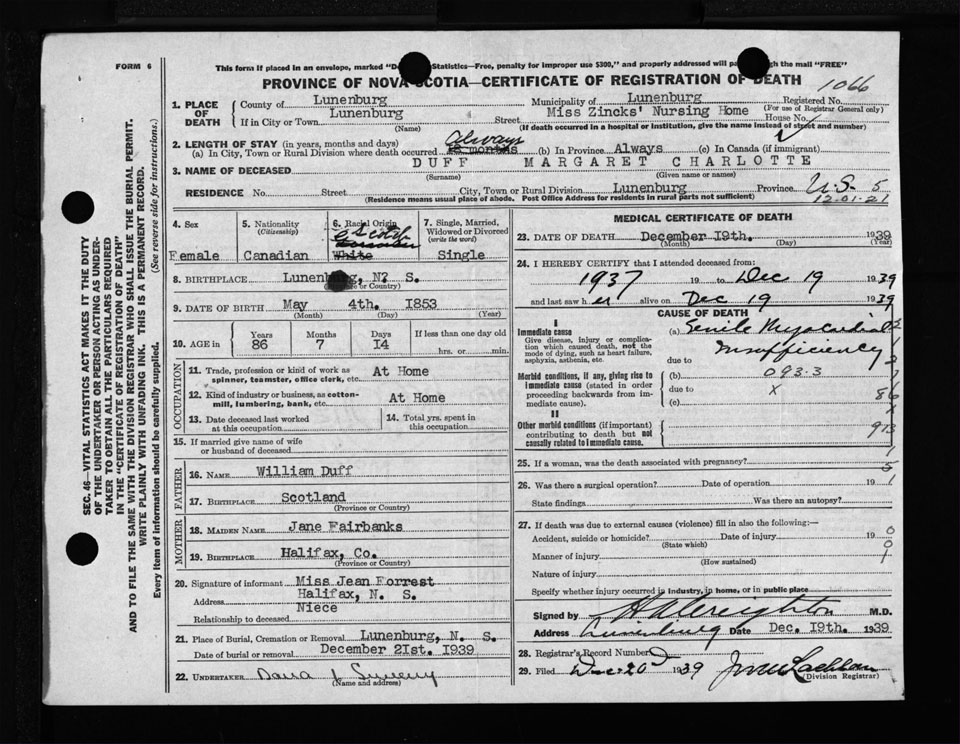 FORM 6
This form if placed in an envelope, marked "De Statistics—Free, penalty for improper use $300," and properly addressed will pa gh the mail "FREE"
PROVINCE OF NOVA SCOTIA—CERTIFICATE OF REGISTRATION OF DEATH
1066
1. PLACE OF DEATH
County of Lunenburg Municipality of Lunenburg Registered No.
(For use of Registrar General only)
If in City or Town Lunenburg Street Miss Zincks' Nursing Home House No.
(Name) (If death occurred in a hospital or institution, give the name instead of street and number)
2. LENGTH OF STAY (in years, months and days) Always
(a) In City, Town or Rural Division where death occurred months (b) In Province Always (c) In Canada (if immigrant)
3. NAME OF DECEASED DUFF MARGARET CHARLOTTE
(Surname) (Given name or names)
RESIDENCE No. Street City, Town or Rural Division Lunenburg Province N.S. 5
(Residence means usual place of abode. Post Office Address for residents in rural parts not sufficient) 12.01.21
4. Sex
Female
5. Nationality
(Citizenship)
Canadian
6. Racial Origin
Scotch
White
7. Single, Married, Widowed or Divorced
(write the word)
Single
8. BIRTHPLACE Lunenburg, N. S.
(Province or Country)
9. DATE OF BIRTH May 4th. 1853
(Month) (Day) (Year)
10. AGE in
Years 86
Months 7
Days 14
If less than one day old
hrs. or min.
OCCUPATION
11. Trade, profession or kind of work as spinner, teamster, office clerk, etc. At Home
12. Kind of industry or business, as cotton-mill, lumbering, bank, etc. At Home
13. Date deceased last worked at this occupation
14. Total yrs. spent in this occupation
15. If married give name of wife or husband of deceased
FATHER
16. NAME William Duff
17. BIRTHPLACE Scotland
(Province or Country)
MOTHER
18. MAIDEN NAME Jane Fairbanks
19. BIRTHPLACE Halifax, Co.
(Province or Country)
20. Signature of informant Miss Jean Forrest
Address Halifax, N. S.
Relationship to deceased Niece
21. Place of Burial, Cremation or Removal Lunenburg, N. S.
Date of burial or removal December 21st. 1939
22. UNDERTAKER
(Name and address)
MEDICAL CERTIFICATE OF DEATH
23. DATE OF DEATH December 19th. 1939
(Month) (Day) (Year)
24. I HEREBY CERTIFY that I attended deceased from:
1937 19 to Dec 19 1939
and last saw her alive on Dec 19 1939
CAUSE OF DEATH
I
Immediate cause
Give disease, injury or complication which caused death, not the mode of dying, such as heart failure, asphyxia, asthenia, etc.
(a) Senile Myocardial Insufficiency
due to
Morbid conditions, if any, giving rise to immediate cause (stated in order proceeding backwards from immediate cause).
(b) 093.3
due to X
(c)
II
Other morbid conditions (if important) contributing to death but not causally related to immediate cause.
25. If a woman, was the death associated with pregnancy?
26. Was there a surgical operation? Date of operation 19
State findings Was there an autopsy?
27. If death was due to external causes (violence) fill in also the following:
Accident, suicide or homicide? Date of injury 19
(State which)
Manner of injury
(How sustained)
Nature of injury
Specify whether injury occurred in industry, in home, or in public place
Signed by H A Creighton M.D.
Address Lunenburg Date Dec. 19th. 1939
28. Registrar's Record Number
29. Filed Dec 20 1939
(Division Registrar)
SEC. 46—VITAL STATISTICS ACT MAKES IT THE DUTY
OF THE UNDERTAKER OR PERSON ACTING AS UNDER-
TAKER TO OBTAIN ALL THE PARTICULARS REQUIRED
IN THE "CERTIFICATE OF REGISTRATION OF DEATH"
AND TO FILE THE SAME WITH THE DIVISION REGISTRAR WHO SHALL ISSUE THE BURIAL PERMIT.
WRITE PLAINLY WITH UNFADING INK. THIS IS A PERMANENT RECORD.
Every item of information should be carefully supplied. (See reverse side for instructions.)